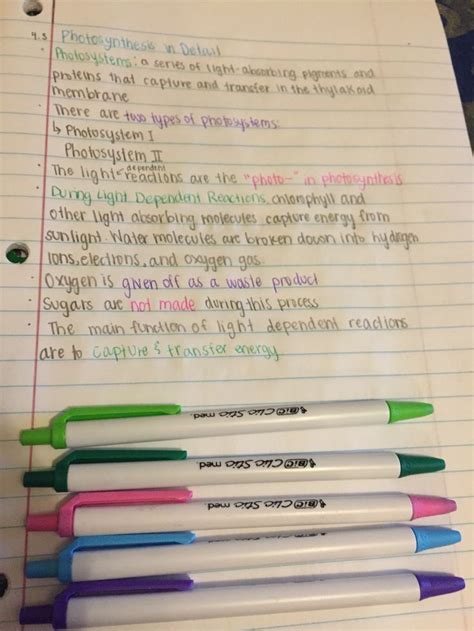 4.3 Photosynthesis in Detail
· Photosystems: a series of light-absorbing pigments and
proteins that capture and transfer in the thylakoid
membrane
· There are two types of photosystems:
↳ Photosystem I
Photosystem II
· The light-dependent reactions are the "photo-" in photosynthesis
· During Light Dependent Reactions, chlorophyll and
other light absorbing molecules capture energy from
sunlight. Water molecules are broken down into hydrogen
ions, electrons, and oxygen gas.
· Oxygen is given off as a waste product
· Sugars are not made during this process
· The main function of light dependent reactions
are to capture & transfer energy
BIC Clic Stic med.
BIC Clic Stic med.
BIC Clic Stic med.
BIC Clic Stic med.
BIC Clic Stic med.